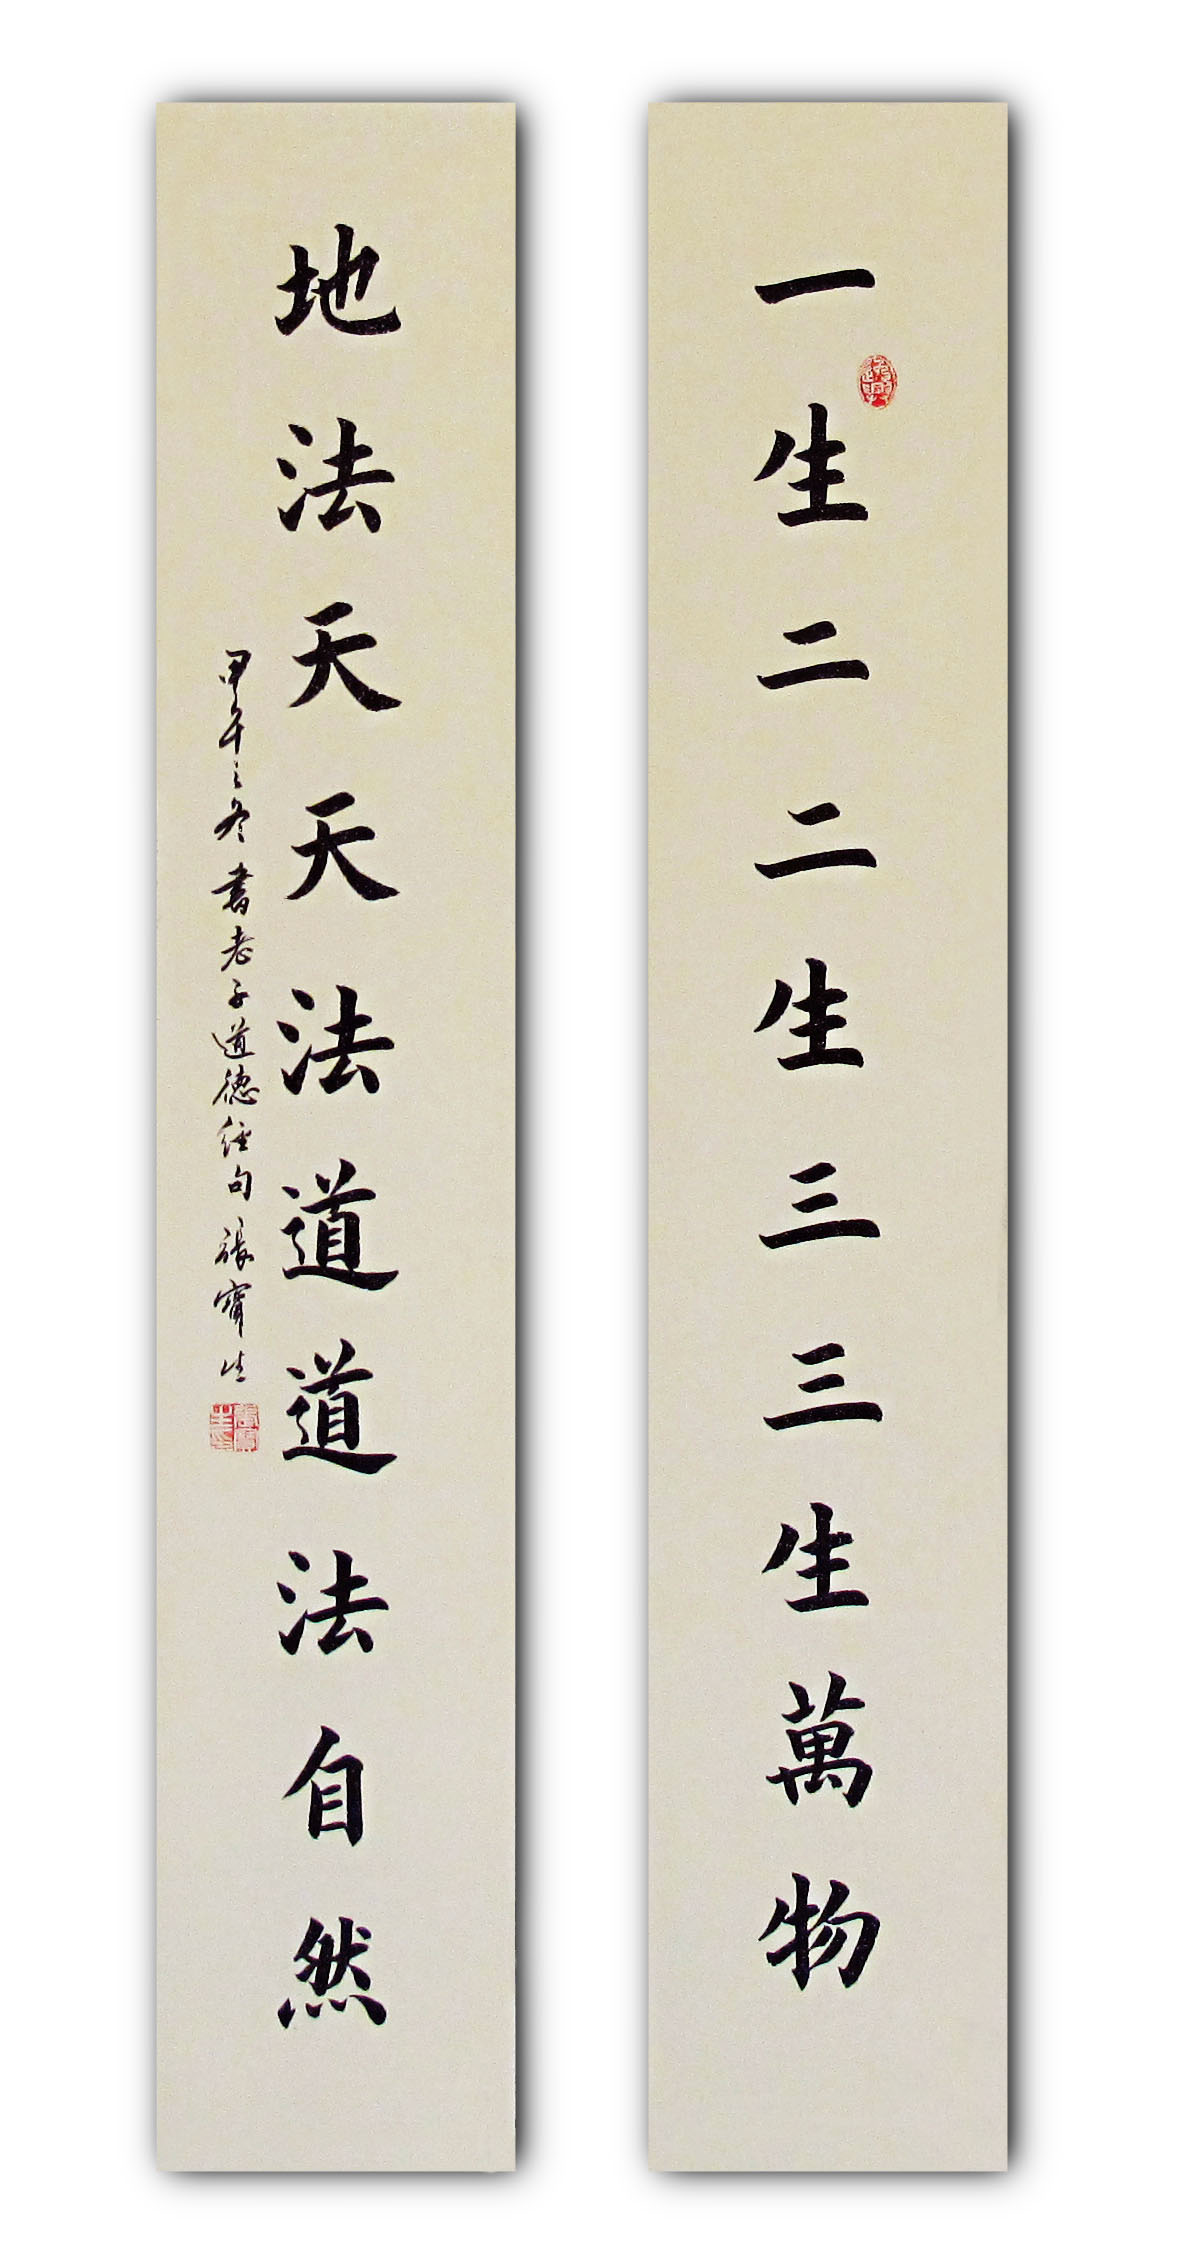 一生二二生三三生萬物
地法天天法道道法自然
甲午之冬書老子道德經句張寶生